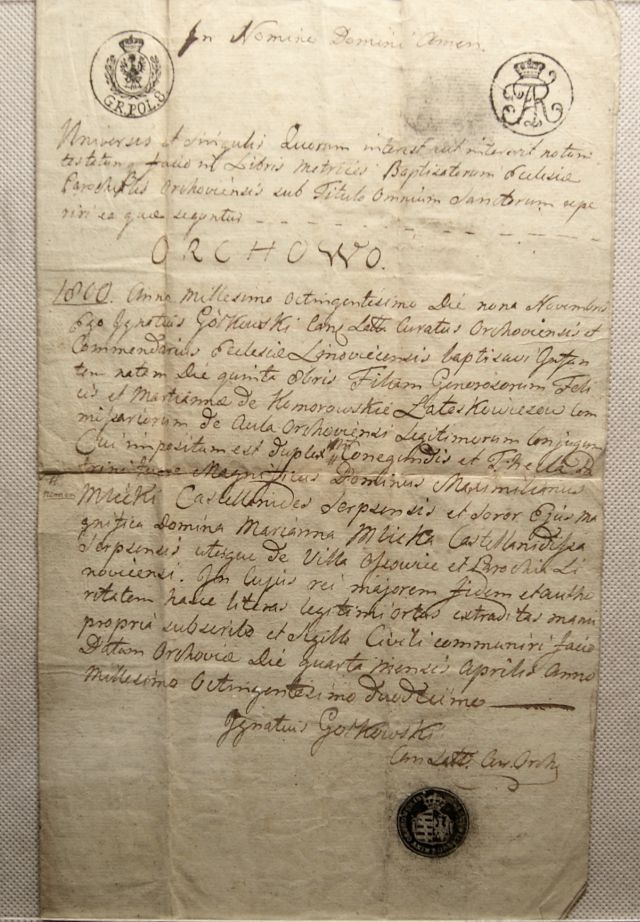 In Nomine Domini Amen.
GR. POL. 8
Universis et Singulis Quorum interest aut intererit notum
testatumq facio in Libris Metrices Baptisatorum Ecclesiæ
Parochialis Orchoviensis sub Titulo Omnium Sanctorum repe
riri ea quæ seguntur
ORCHOWO.
1800. Anno Millesimo Octringentesimo Die nona Novembris
Ego Ignatius Gółkowski Can: Latt: Curatus Orchoviensis et
Commendarius Ecclesiæ Linoviecensis baptisavi Infan
tem natam Die quinta 8bris Filiam Generosorum Feli
cis et Mariannæ de Komorowskie Com
misariorum de Aula Orchoviensi Legitimorum Conjugum
Cui impositum est duplex Conegundis et
nomen
fuere Magnificus Dominus Maximilianus
Mlicki Castellanides Serpsensis et Soror Ejus ma
gnifica Domina Marianna Mlicka Castellanidissa
Serpsensis uterque de Villa et Parochia Li
noviecensi. In Cujus rei majorem fidem et autho
ritatem hasce literas legitimi ortus extraditas manu
propria subscribo et Sigillo Civili communiri facio
Datum Orchoviæ Die quarta mensis Aprilis Anno
Millesimo Octringentesimo duodecimo
Ignatius Gółkowski
Can: Latt: Cur. Orch